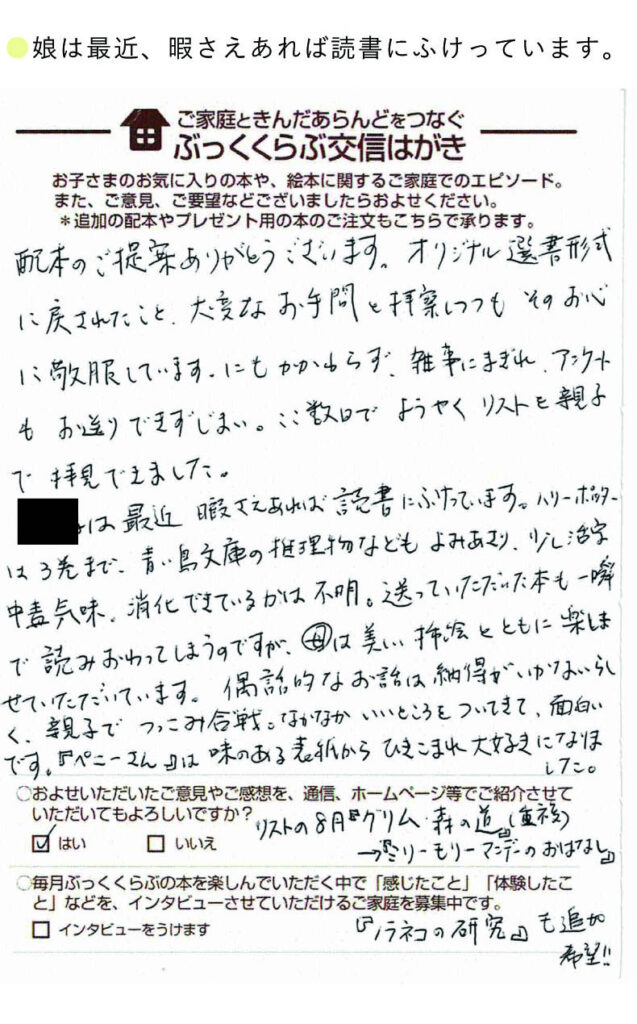 ●娘は最近、暇さえあれば読書にふけっています。
ご家庭ときんだあらんどをつなぐ
ぶっくくらぶ交信はがき
お子さまのお気に入りの本や、絵本に関するご家庭でのエピソード。
また、ご意見、ご要望などございましたらおよせください。
＊追加の配本やプレゼント用の本のご注文もこちらで承ります。
配本のご提案ありがとうございます。オリジナル選書形式
に戻されたこと、大変なお手間と拝察しつつも そのお心
に敬服しています。にもかかわらず、雑事にまぎれ、アンケート
も お送りできずじまい。ここ数日で ようやく リストを親子
で 拝見できました。
は 最近 暇さえあれば 読書にふけっています。ハリーポッター
は3巻まで、青い鳥文庫の推理物なども よみあさり、少し活字
中毒気味。消化できているかは不明。送っていただいた本も一瞬
で 読みおわってしまうのですが、母は美しい挿絵とともに楽しま
せていただいています。偶話的なお話は納得がいかないらし
く、親子で つっこみ合戦。なかなか いいところをついてきて、面白い
です。『ペニーさん』は味のある表紙から ひきこまれ大好きになりま
した。
○およせいただいたご意見やご感想を、通信、ホームページ等でご紹介させて
いただいてもよろしいですか？
☑ はい　□ いいえ
リストの8月『グリム・森の道』(重複)
→『ミリー・モリー・マンデーのおはなし』
○毎月ぶっくくらぶの本を楽しんでいただく中で「感じたこと」「体験したこ
と」などを、インタビューさせていただけるご家庭を募集中です。
□ インタビューをうけます
『ノラネコの研究』も追加
希望!!